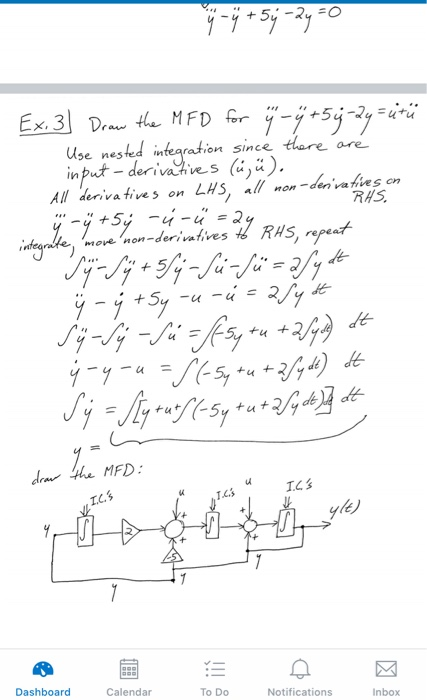 y⃛-ÿ+5ẏ-2y=0
Ex.3] Draw the MFD for y⃛-ÿ+5ẏ-2y=u̇+ü
Use nested integration since there are
input-derivatives (u̇,ü).
All derivatives on LHS, all non-derivatives on
RHS.
y⃛-ÿ+5ẏ-u̇-ü=2y
integrate, move non-derivatives to RHS, repeat
∫y⃛-∫ÿ+5∫ẏ-∫u̇-∫ü=2∫y dt
ÿ-ẏ+5y-u-u̇=2∫y dt
∫ÿ-∫ẏ-∫u̇=∫(-5y+u+2∫y dt) dt
ẏ-y-u=∫(-5y+u+2∫y dt) dt
∫ẏ=∫[y+u+∫(-5y+u+2∫y dt)dt] dt
y=
draw the MFD:
I.C.'s u I.C.'s u I.C.'s
y ∫ 2 + + ∫ + + ∫ y(t)
-5
y y
y
Dashboard Calendar To Do Notifications Inbox